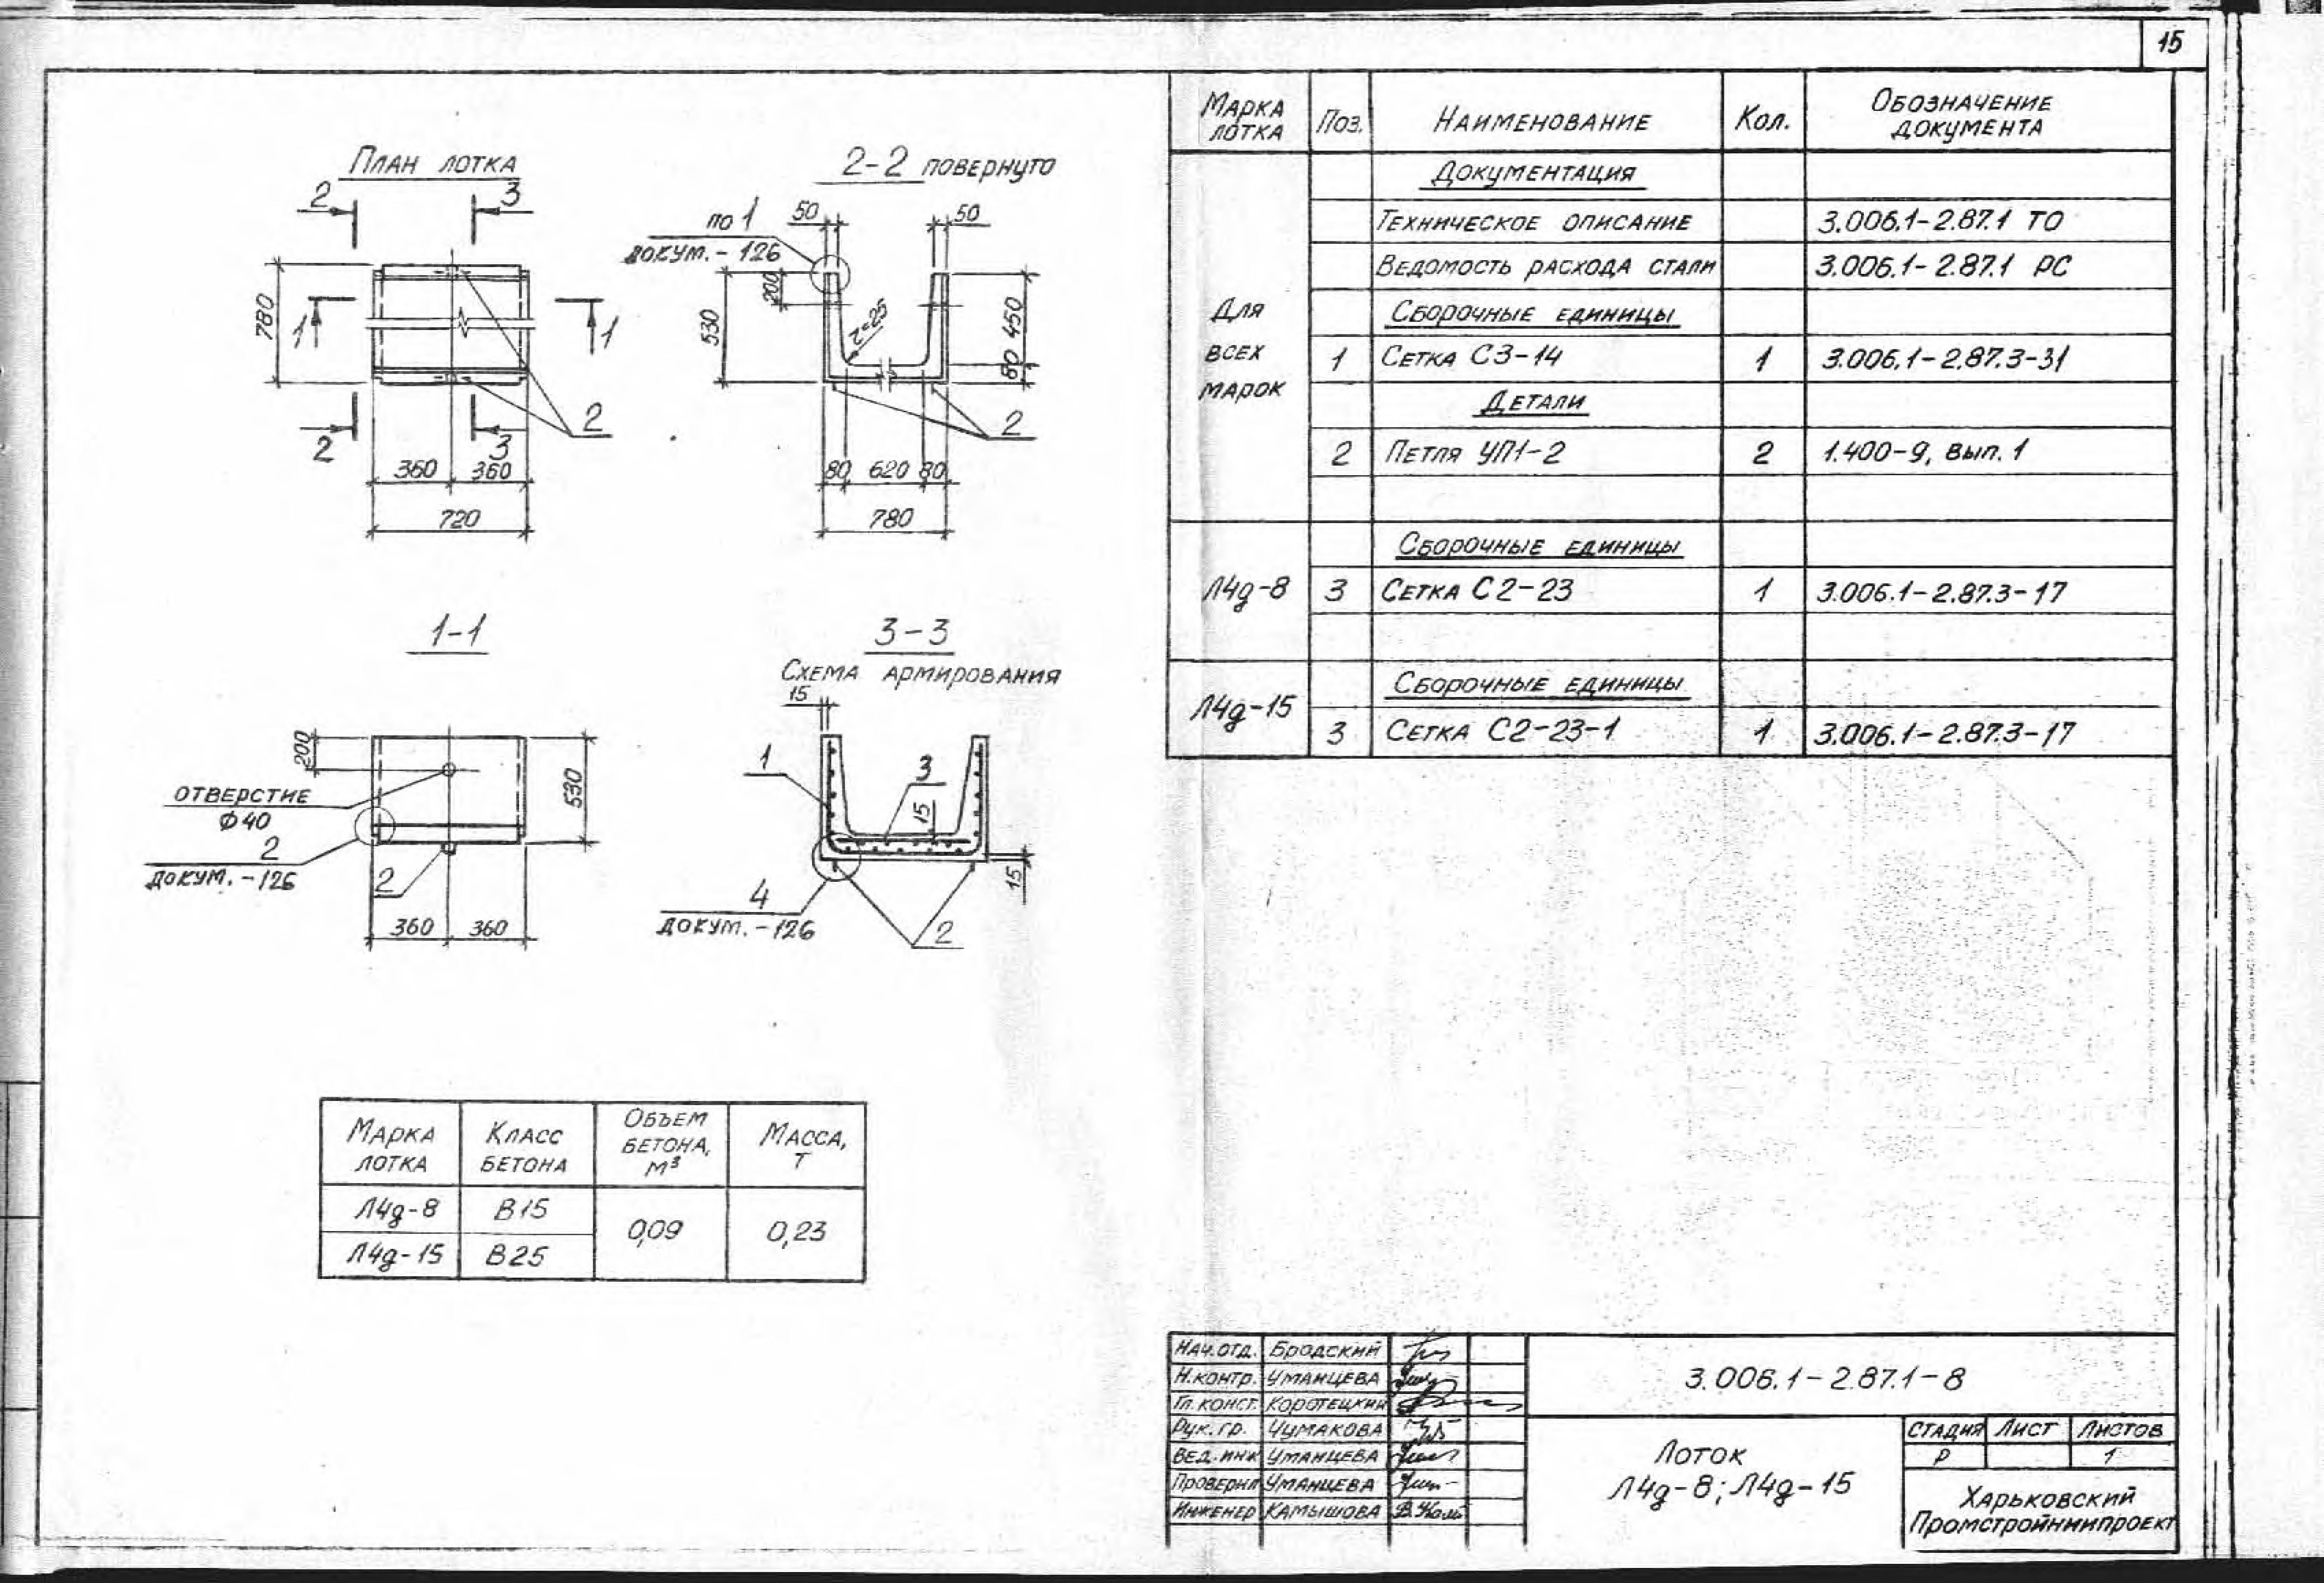 15
План лотка
2
3
780
1
1
2
2
3
360
360
720
2-2 повернуто
по 1
докум. - 126
50
50
200
530
r=25
450
80
2
80
620
80
780
1-1
200
530
отверстие
ϕ40
2
докум. - 126
2
360
360
3-3
Схема армирования
15
1
3
15
15
4
докум. - 126
2
Марка лотка
Класс бетона
Объем бетона, м³
Масса, т
Л4д-8
В15
0,09
0,23
Л4д-15
В25
Марка лотка
Поз.
Наименование
Кол.
Обозначение документа
Для всех марок
Документация
Техническое описание
3.006.1-2.87.1 ТО
Ведомость расхода стали
3.006.1-2.87.1 РС
Сборочные единицы
1
Сетка С3-14
1
3.006.1-2.87.3-31
Детали
2
Петля УП1-2
2
1.400-9, вып. 1
Л4д-8
Сборочные единицы
3
Сетка С2-23
1
3.006.1-2.87.3-17
Л4д-15
Сборочные единицы
3
Сетка С2-23-1
1
3.006.1-2.87.3-17
Нач.отд. Бродский
Н.контр. Уманцева
Гл.конст. Коротецкий
Рук.гр. Чумакова
Вед.инж Уманцева
Проверил Уманцева
Инженер Камышова
3.006.1-2.87.1-8
Лоток
Л4д-8; Л4д-15
Стадия Лист Листов
Р 1
Харьковский
Промстройниипроект